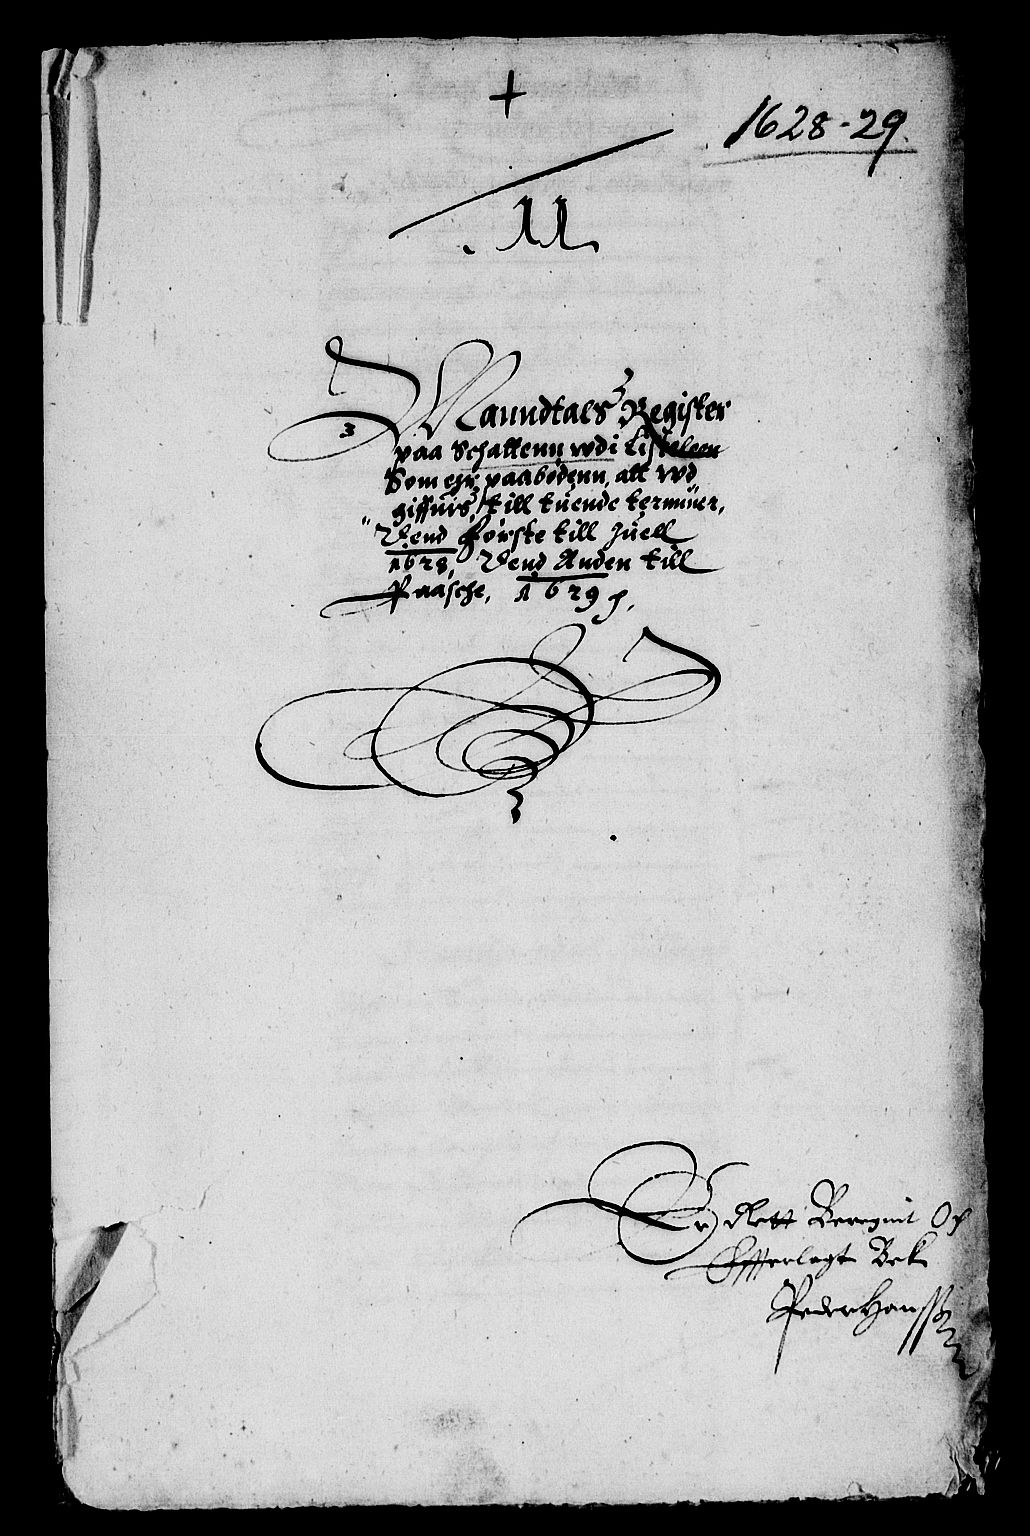 +
1628-29.
11
Manndtals Register
paa Schattenn wdi Listeleen
Som ehr paabødenn, att wd
giffuis, till tuende terminer,
Dend første till Juell
1628, Dend Anden till
Paasche, 1629
Er Rett Beregnit Och
Offuerlagt Bek
Peder Hanss